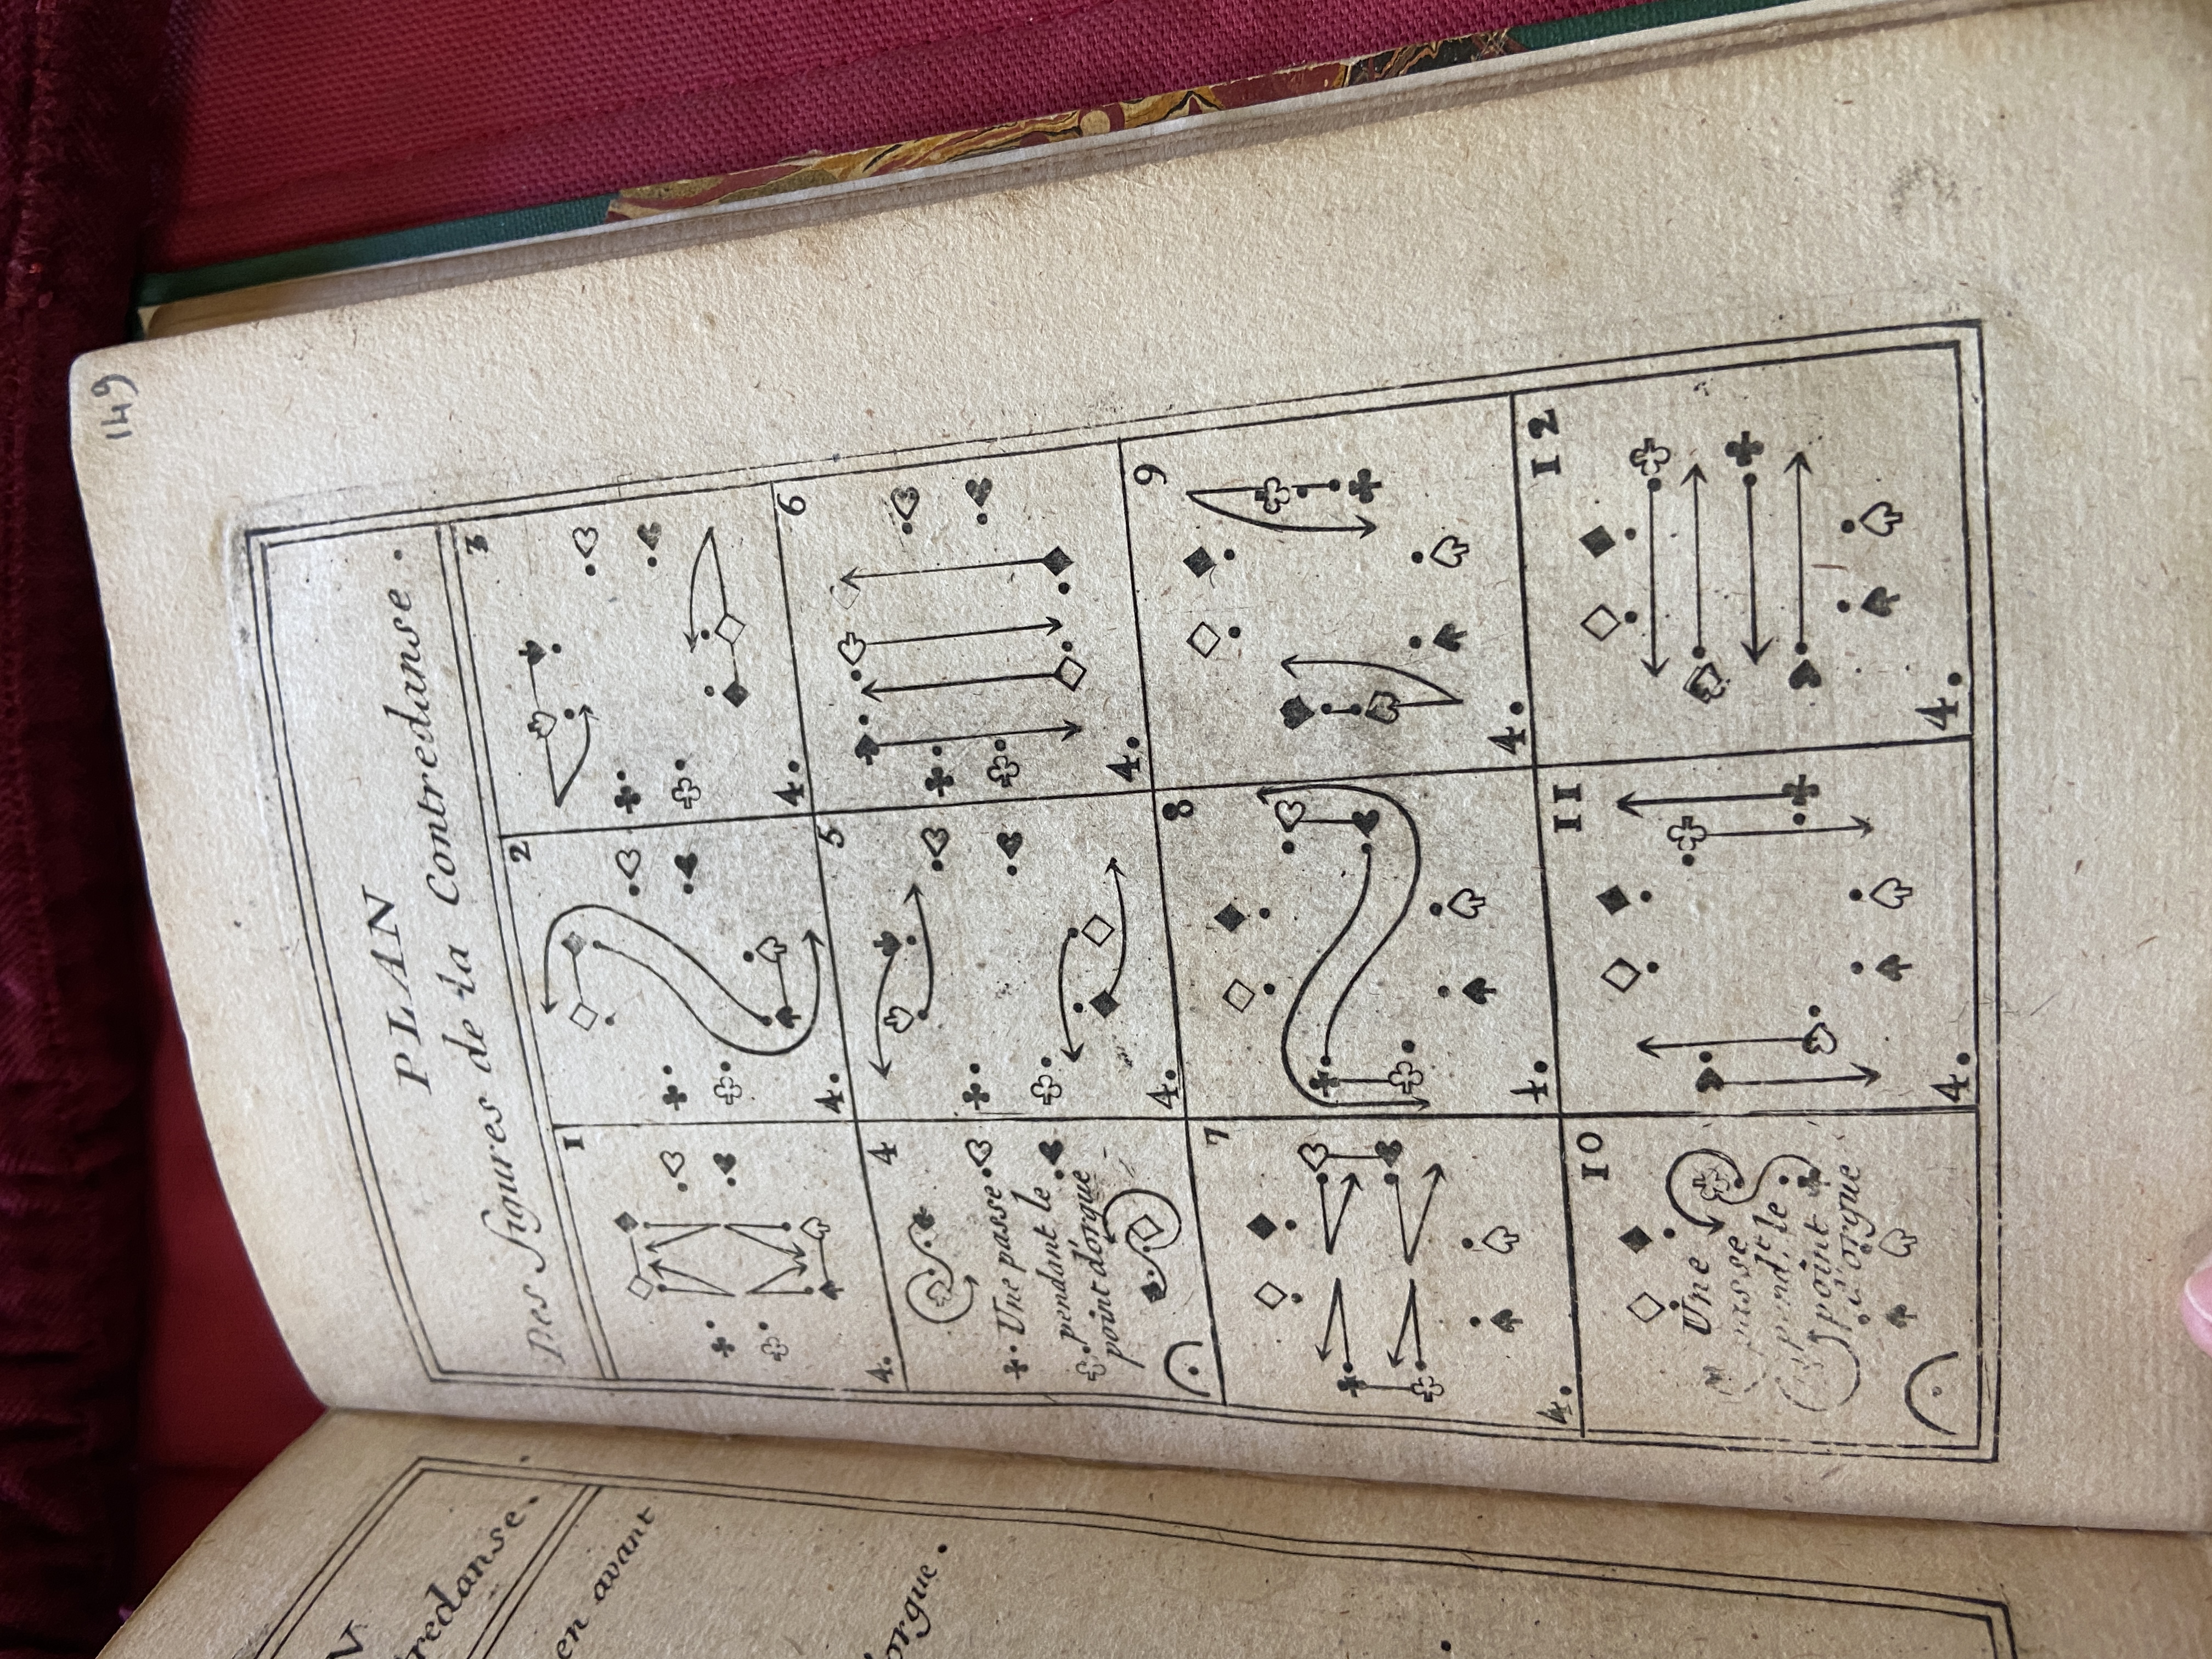 149
PLAN
Des Figures de la Contredanse.
1
4.
2
4.
3
4.
4
Une passe
pendant le
point d'orgue
5
4.
6
4.
7
4.
8
4.
9
4.
10
Une
passe
pend.t le
point
d'orgue
11
4.
12
4.
redanse.
en avant
orgue.